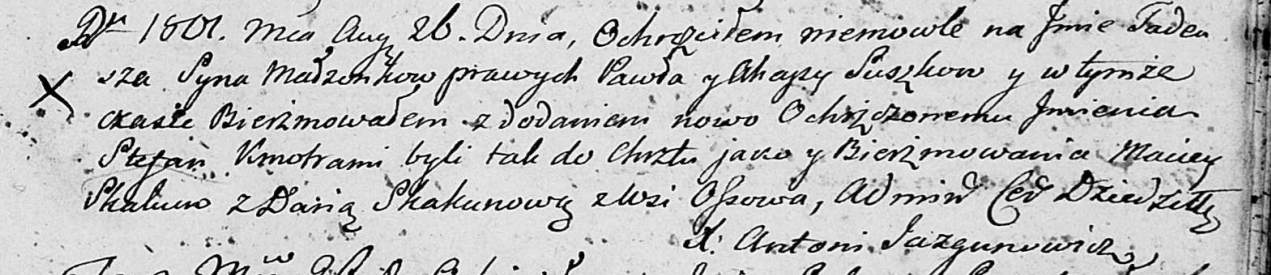 Rr 1801. Mca Aug 26. Dnia, Ochrzciłem niemowle na Jmie Tadeu
sza Syna Małzonkow prawych Pawła y Ahapy Suszkow y w tymże
czasie Bierzmowałem z dodaniem nowo Ochrzczonemu Jmienia
Stefan Kmotrami byli tak do Chrztu jako y Bierzmowania Maciey
Skakun z Darią Skakunową z Wsi Ossowa, Admin
X. Antoni Jazgunowicz